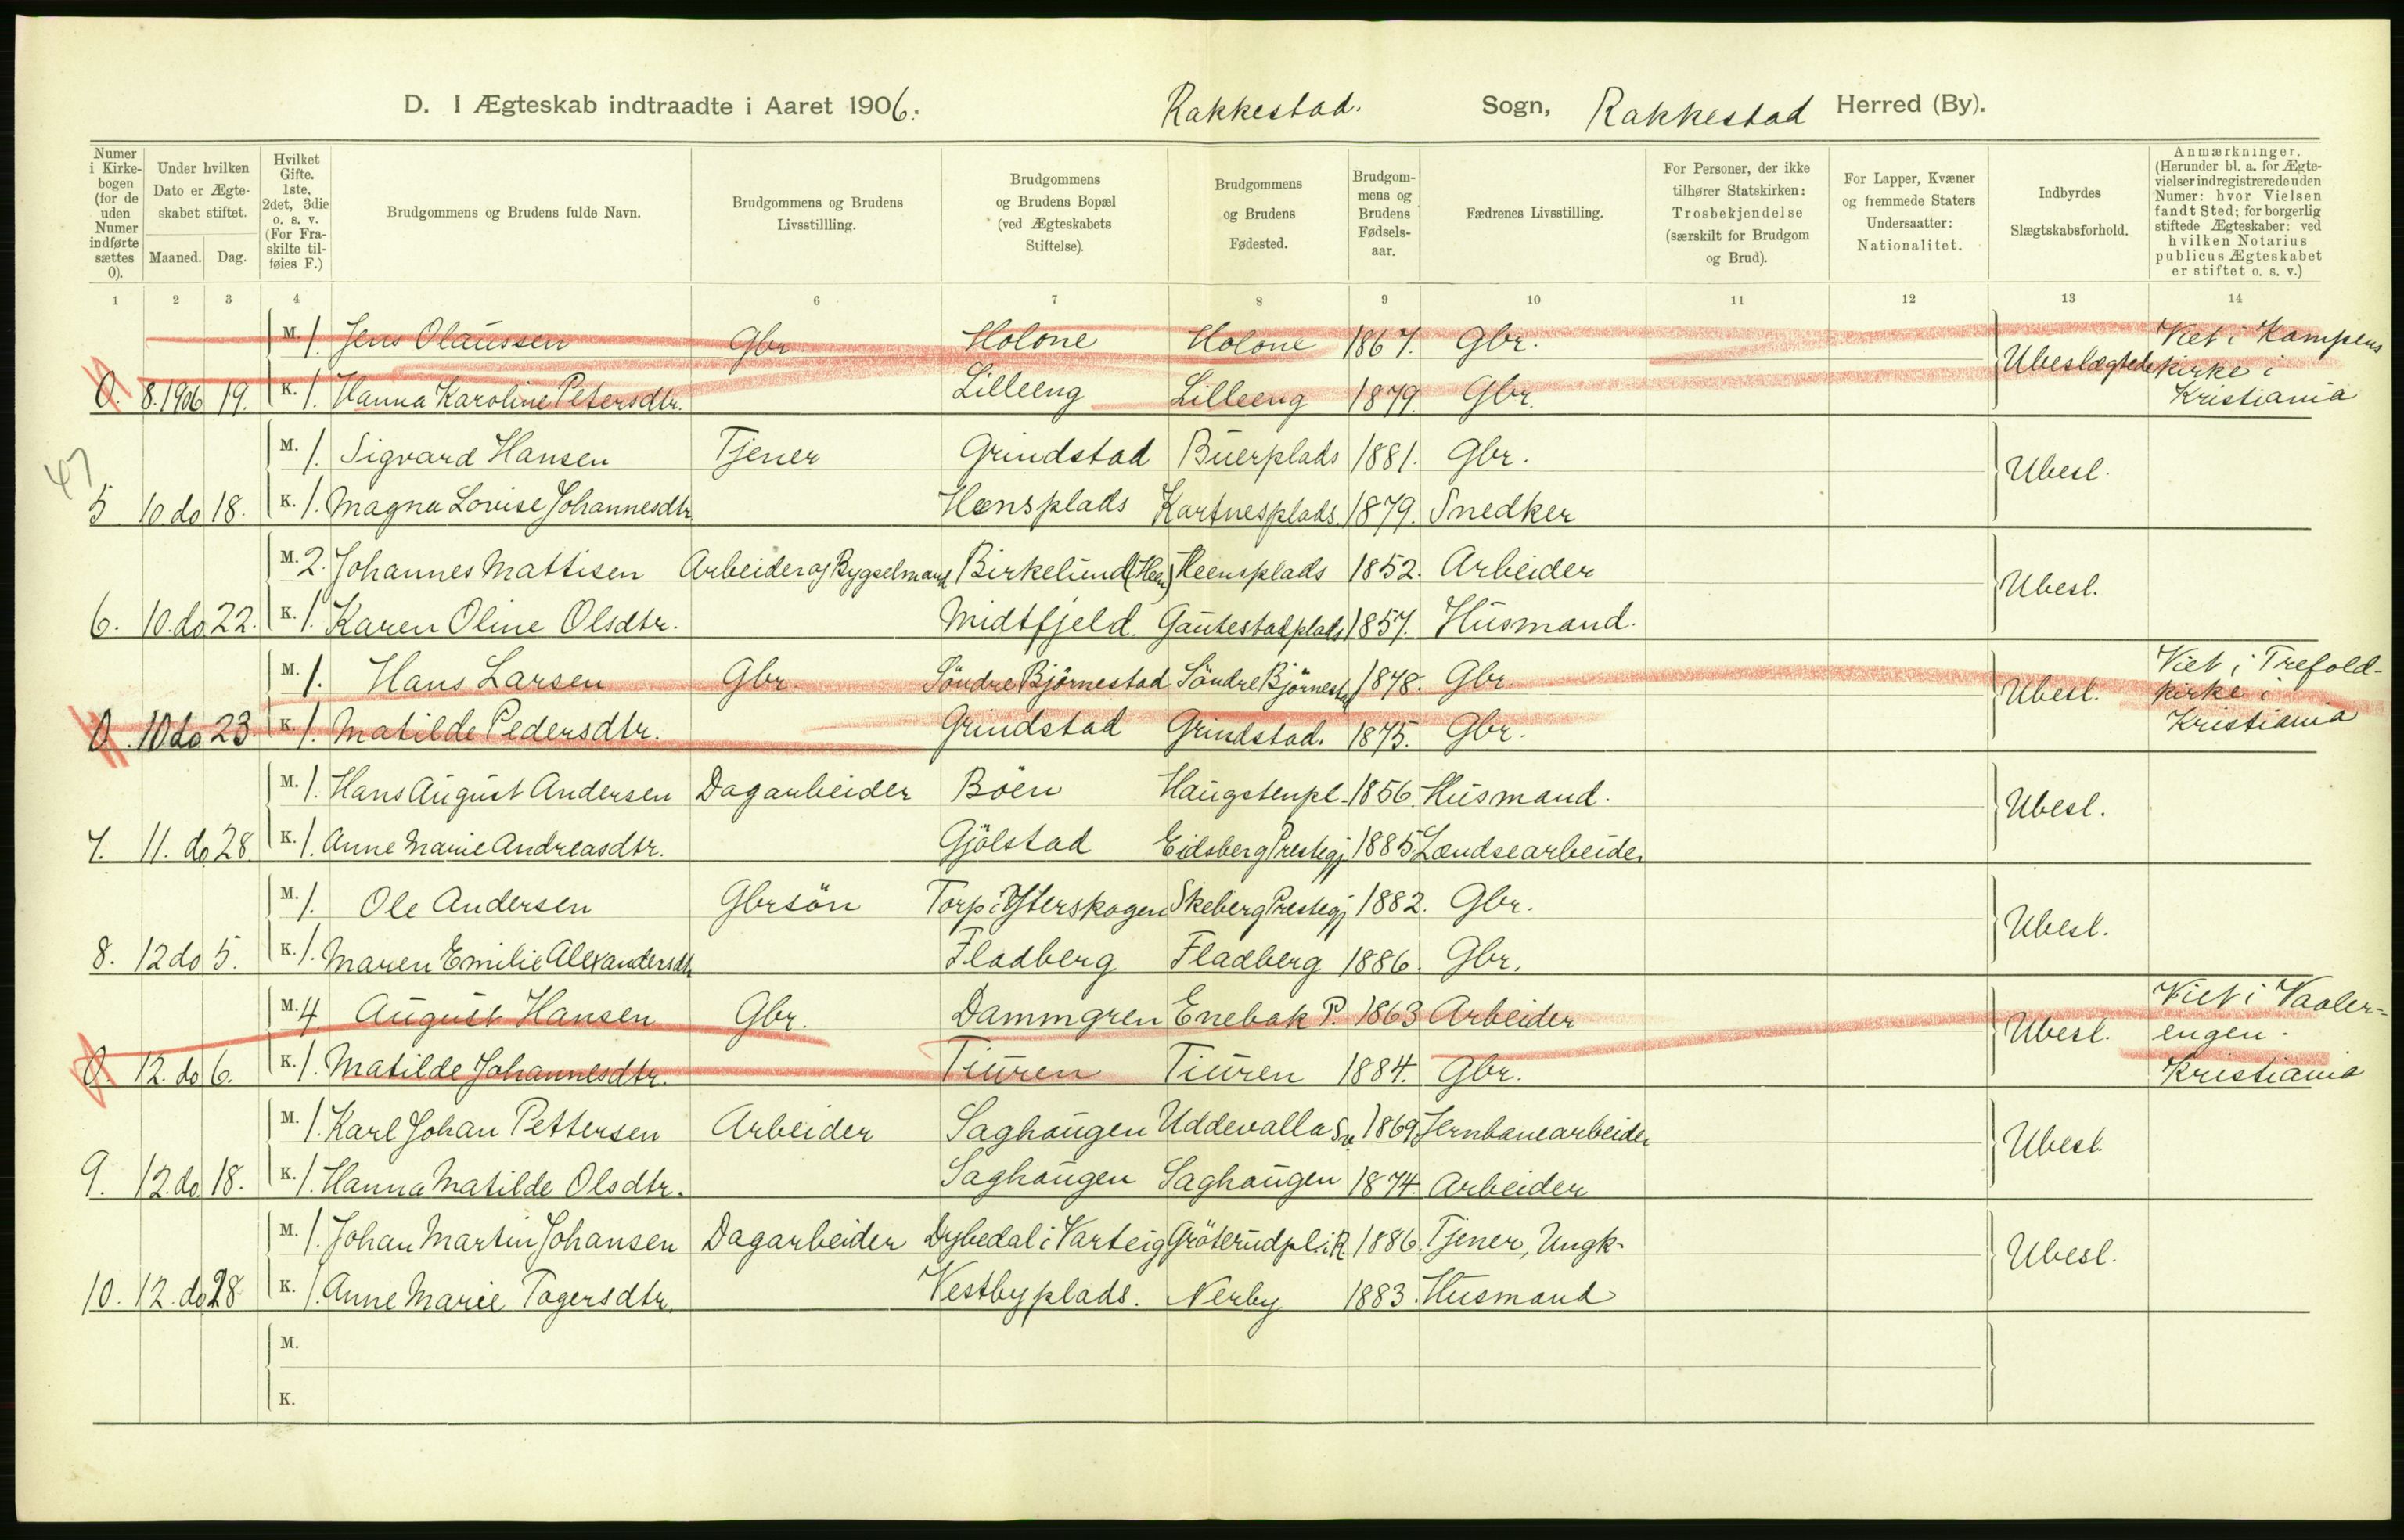 D. I Ægteskab indtraadte i Aaret 1906. Rakkestad. Sogn, Rakkestad Herred (By).
Numer i Kirkebogen (for de uden Numer indførte sættes 0). Under hvilken Dato er Ægteskabet stiftet. Maaned. Dag. Hvilket Gifte. 1ste, 2det, 3die o. s. v. (For Fraskilte tilføies F.) Brudgommens og Brudens fulde Navn. Brudgommens og Brudens Livsstillling. Brudgommens og Brudens Bopæl (ved Ægteskabets Stiftelse). Brudgommens og Brudens Fødested. Brudgommens og Brudens Fødselsaar. Fædrenes Livsstilling. For Personer, der ikke tilhører Statskirken: Trosbekjendelse (særskilt for Brudgom og Brud). For Lapper, Kvæner og fremmede Staters Undersaatter: Nationalitet. Indbyrdes Slægtskabsforhold. Anmærkninger. (Herunder bl. a. for Ægtevielser indregistrerede uden Numer: hvor Vielsen fandt Sted; for borgerlig stiftede Ægteskaber: ved hvilken Notarius publicus Ægteskabet er stiftet o. s. v.)
1 2 3 4 6 7 8 9 10 11 12 13 14
M. 1. Jens Olaussen Gbr. Holone Holone 1867. Gbr. Ubeslægtede Viet i Kampens kirke i Kristiania
0. 8.1906 19. K. 1. Hanna Karoline Petersdtr. Lilleeng Lilleeng 1879. Gbr.
47
M. 1. Sigvard Hansen Tjener Grindstad Buerplads 1881. Gbr. Ubesl.
5 10 do 18. K. 1. Magna Lovise Johannesdtr. Hensplads Kartnesplads. 1879. Snedker
M. 2. Johannes Mattisen Arbeider og Bygselmand Birkelund (Heen) Heensplads 1852. Arbeider Ubesl.
6. 10. do 22. K. 1. Karen Oline Olsdtr. Midtfjeld. Gautestadplads 1857. Husmand.
M. 1. Hans Larsen Gbr. Söndre Björnestad Söndre Björnestad 1878. Gbr. Ubesl. Viet i Trefold-kirke i Kristiania
0. 10 do 23 K. 1. Matilde Pedersdtr. Grindstad Grindstad. 1875. Gbr.
M. 1. Hans August Andersen Dagarbeider Böen Haugstenpl. 1856. Husmand. Ubesl.
7. 11. do 28. K. 1. Anne Marie Andreasdtr. Gjölstad Eidsberg Prestegj 1885. Lændsearbeider
M. 1. Ole Andersen Gbrsön Torp i Ytterskogen Skeberg Prestegj 1882. Gbr. Ubesl.
8. 12 do 5. K. 1. Maren Emilie Alexandersdtr Fladberg Fladberg 1886. Gbr.
M. 4 August Hansen Gbr. Dammgren Enebak P. 1863 Arbeider Ubesl. Viet i Vaaler=engen. Kristiania
0. 12. do 6. K. 1. Matilde Johannesdtr. Tiuren Tiuren 1884. Gbr.
M. 1. Karl Johan Pettersen Arbeider Saghaugen Uddevalla Sv. 1869. Jernbanearbeider Ubesl.
9. 12. do 18. K. 1. Hanna Matilde Olsdtr. Saghaugen Saghaugen 1874. Arbeider
M. 1. Johan Martin Johansen Dagarbeider Dybedal i Varteig Gröterudpl. i R 1886. Tjener, Ungk. Ubesl.
10. 12. do 28 K. 1. Anne Marie Tagersdtr. Vestbyplads. Nerby 1883. Husmand
M.
K.